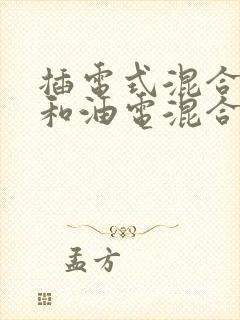 插電式混合
和油電混合
孟方